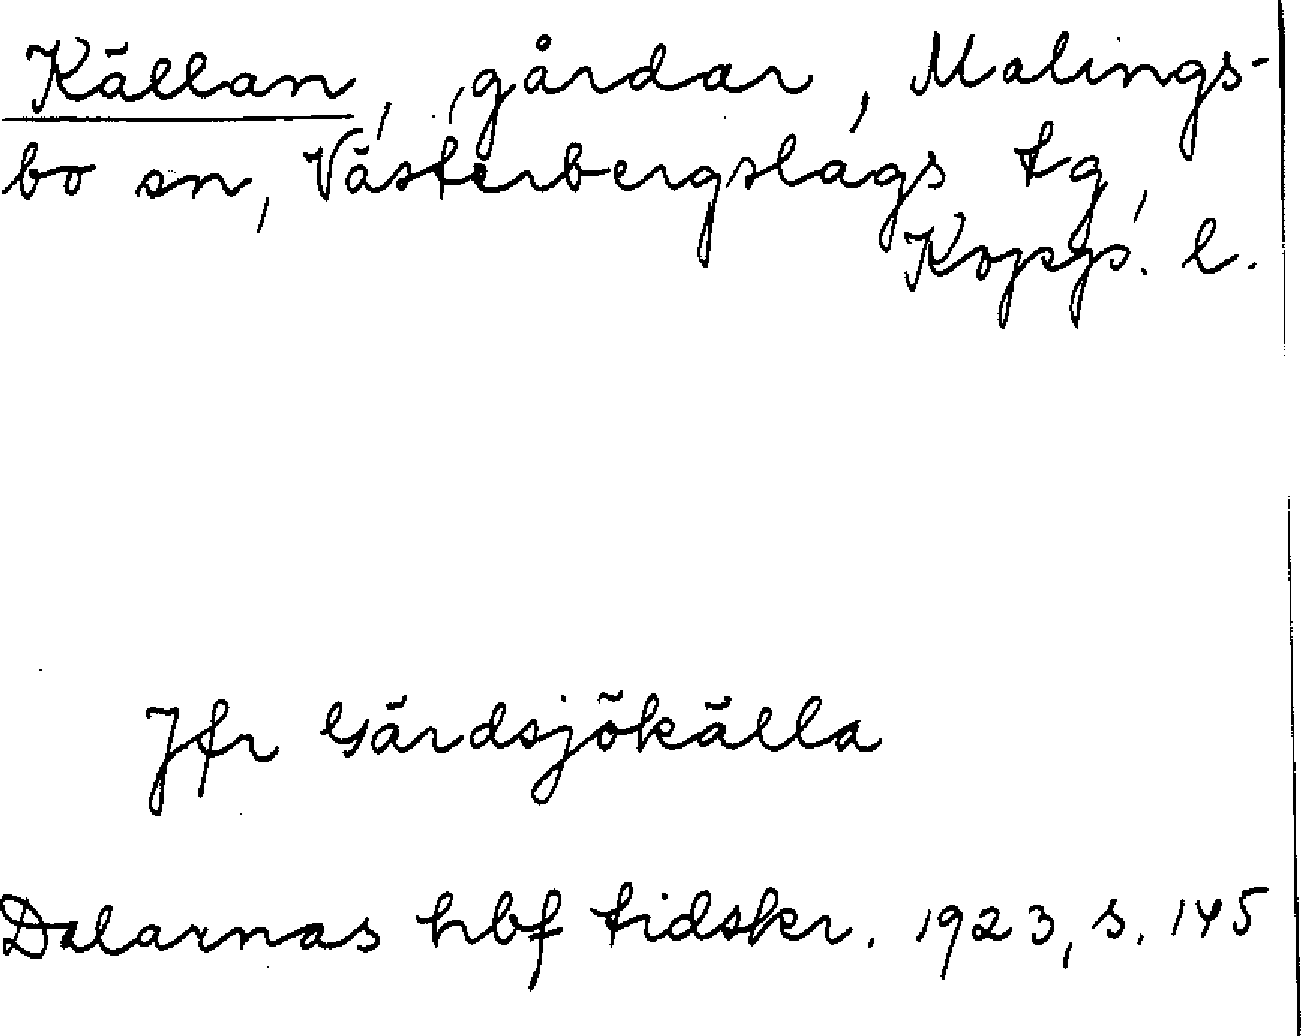 Källan, gårdar, Malings-
bo sn, Västerbergslags tg,
Kopps. l.
Jfr Gärdsjökälla
Dalarnas hbf tidskr. 1923, s. 145